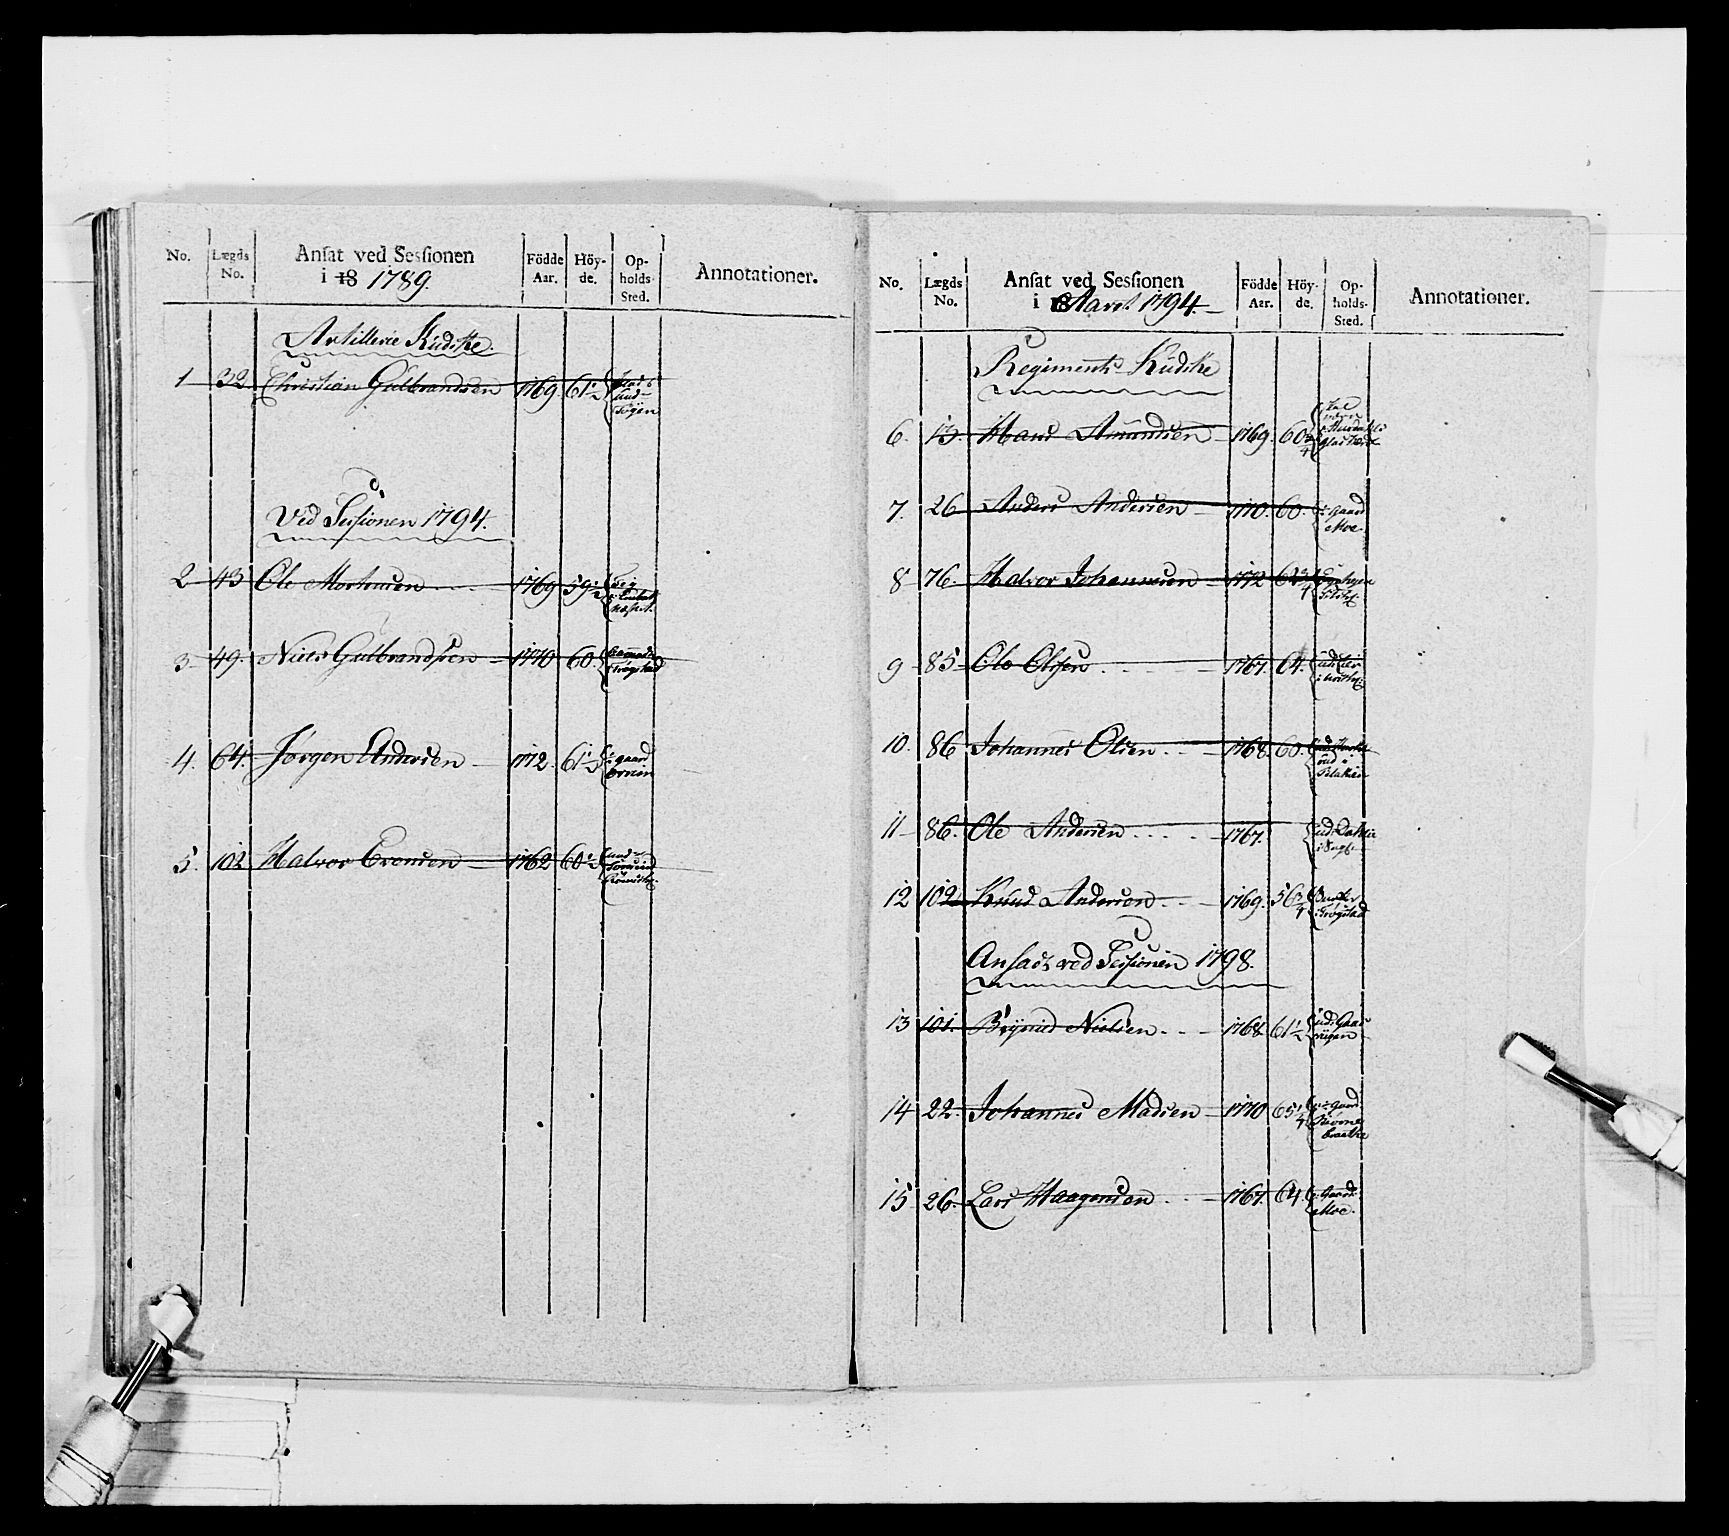 No. Lægds No. Ansat ved Sessionen i 18 1789. Födde Aar. Höy-de. Op-holds-Sted. Annotationer.
Artillerie Kudske.
1 32 Christian Gulbrandsen 1769. 61 1/2
Ved Sessionen 1794.
2 43 Ole Mortensen 1769 59 1/2
3 49. Niels Gulbrandsen 1770 60. Trögstad
4. 64. Jörgen Andersen 1772. 61 1/2 gaard
5. 102 Halvor Evensen 1762 60 1/2
No. Lægds No. Ansat ved Sessionen i 18 Aaret 1794. Födde Aar. Höy-de. Op-holds-Sted. Annotationer.
Regiments Kudske
6. 13. Hans Amundsen 1769. 60 3/4
7. 26 Anders Andersen 1770. 60. gaard Moe.
8 76. Halvor Johannesen 1772
9 85 Ole Olsen 1767. 64.
10. 86 Johannes Olsen 1768. 60.
11 86. Ole Andersen 1767.
12 102 Knud Andersen 1769. 56 3/4 Trögstad
Ansadt ved Sessionen 1798.
13 101. Nielsen 1768 61 1/2
14 22. Johannes Madsen 1770 65 1/4 gaard
15 26. Lars Haagensen 1767. 64. Gaard Moe.